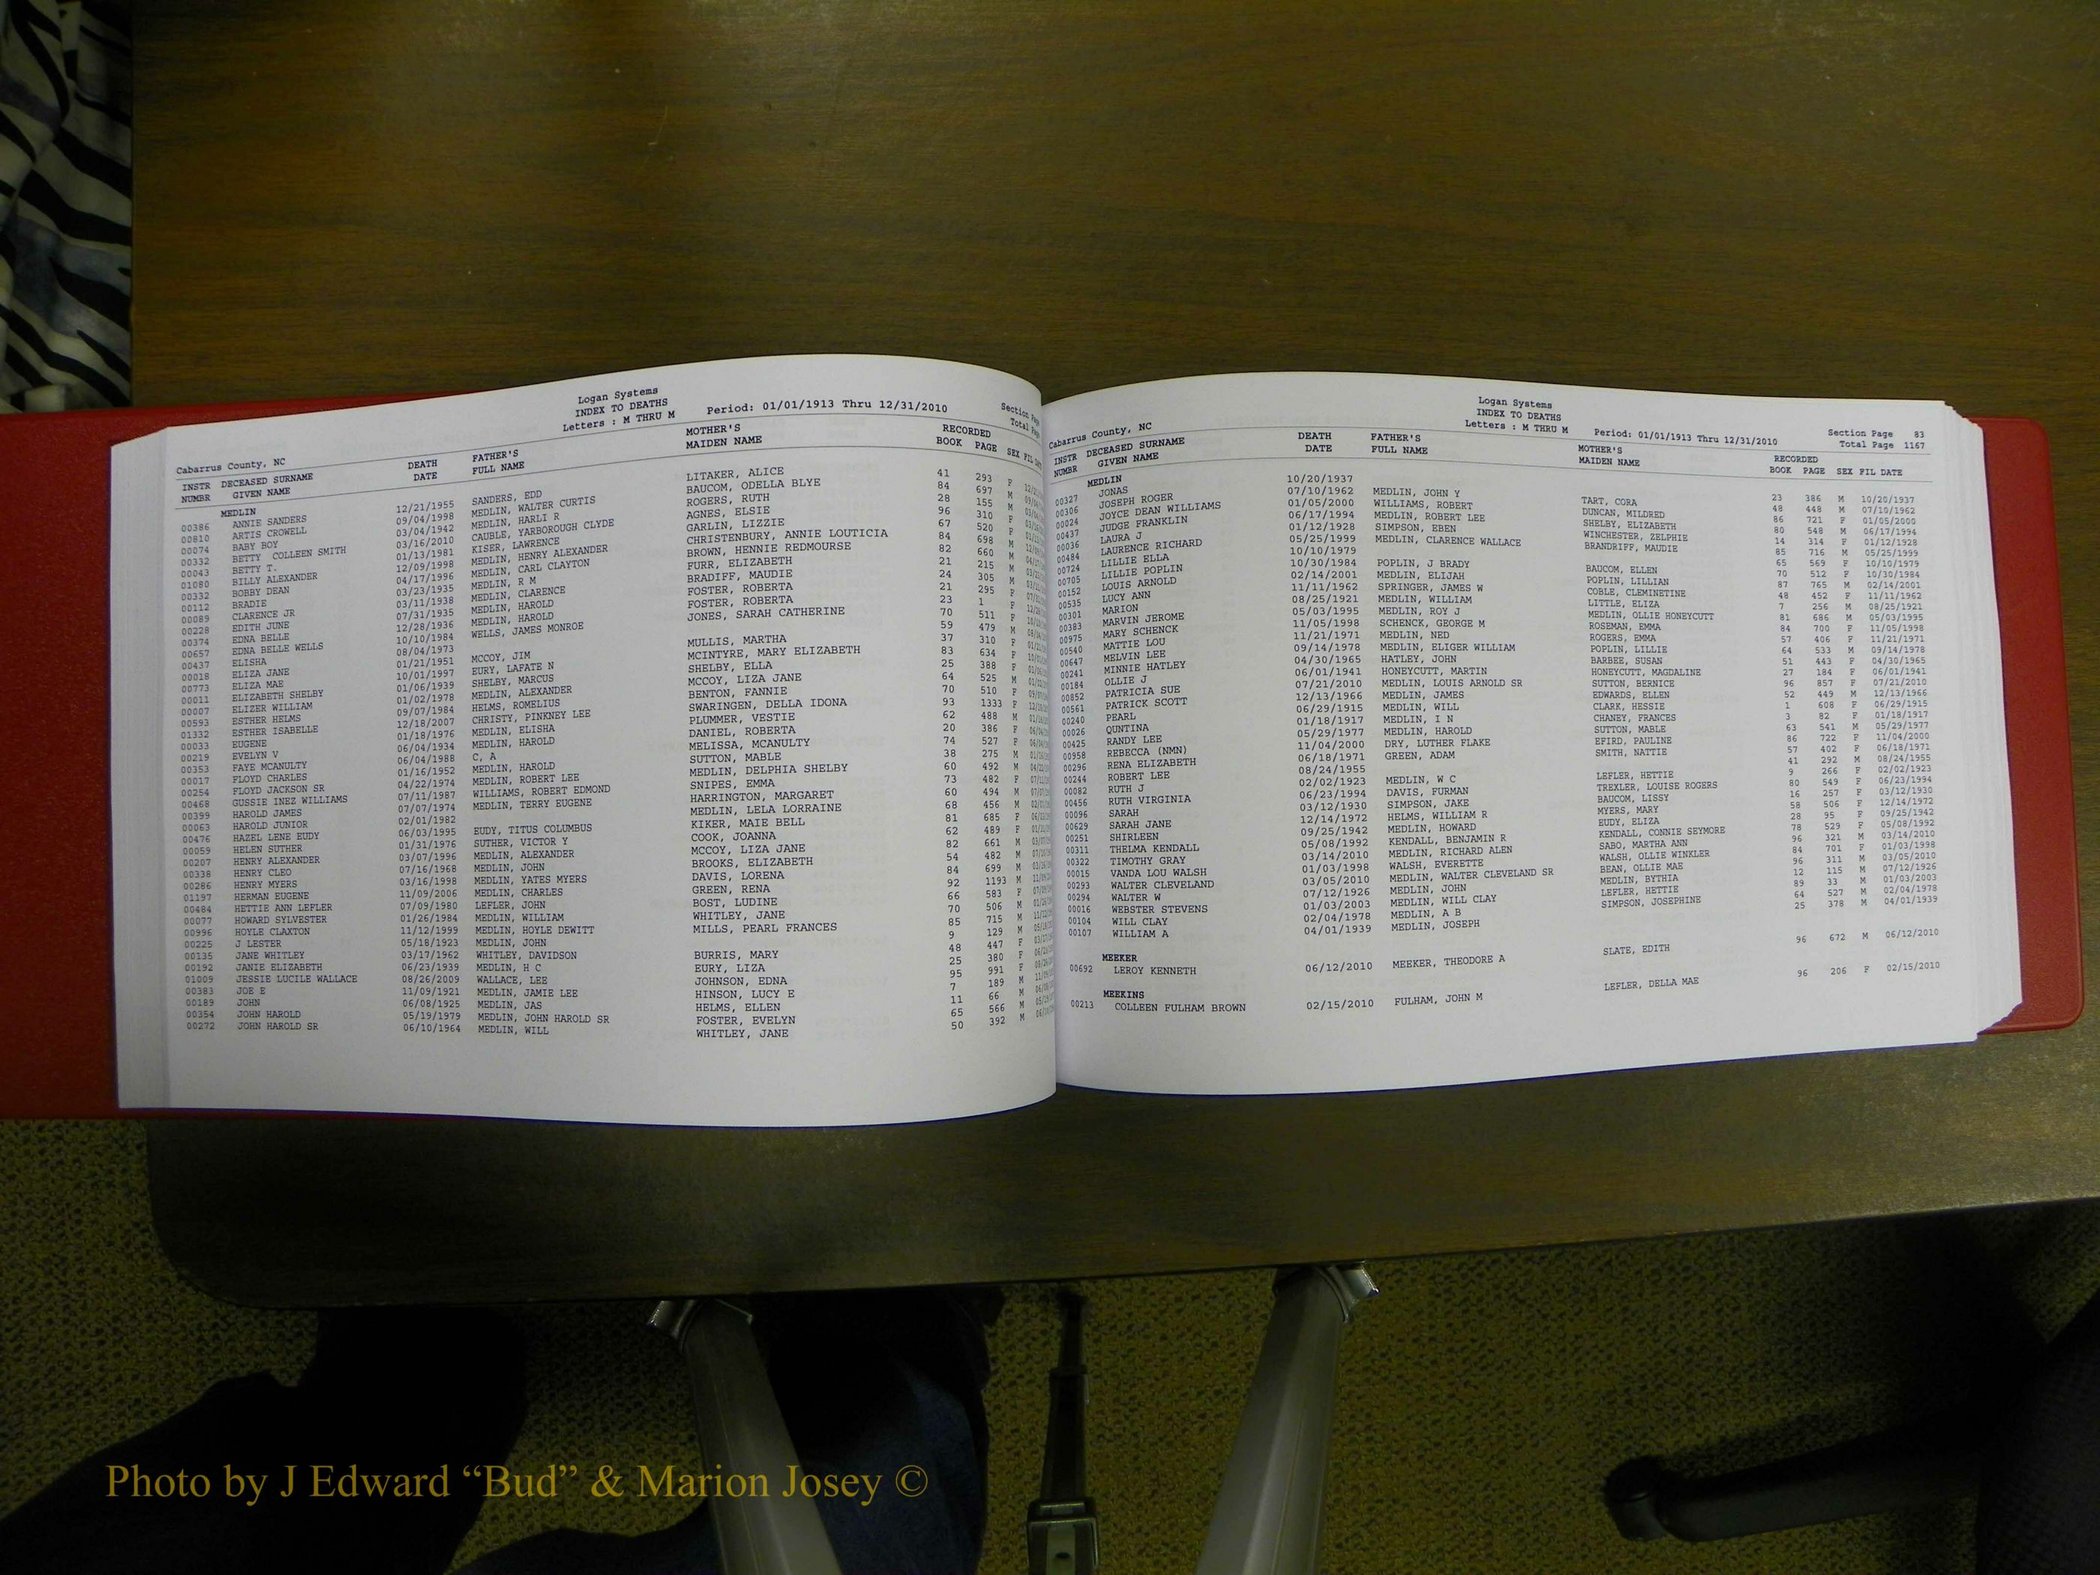 Logan Systems
INDEX TO DEATHS
Letters : M THRU M Period: 01/01/1913 Thru 12/31/2010
Cabarrus County, NC
INSTR NUMBR DECEASED SURNAME GIVEN NAME DEATH DATE FATHER'S FULL NAME MOTHER'S MAIDEN NAME RECORDED BOOK PAGE SEX FIL DATE
MEDLIN
00386 ANNIE SANDERS 12/21/1955 SANDERS, EDD LITAKER, ALICE 41 293 F
00810 ARTIS CROWELL 09/04/1998 MEDLIN, WALTER CURTIS BAUCOM, ODELLA BLYE 84 697 M
00074 BABY BOY 03/04/1942 MEDLIN, HARLI R ROGERS, RUTH 28 155 M
00332 BETTY COLLEEN SMITH 03/16/2010 CAUBLE, YARBOROUGH CLYDE AGNES, ELSIE 96 310 F
00043 BETTY T. 01/13/1981 KISER, LAWRENCE GARLIN, LIZZIE 67 520 F
01080 BILLY ALEXANDER 12/09/1998 MEDLIN, HENRY ALEXANDER CHRISTENBURY, ANNIE LOUTICIA 84 698 M
00332 BOBBY DEAN 04/17/1996 MEDLIN, CARL CLAYTON BROWN, HENNIE REDMOURSE 82 660 M
00112 BRADIE 03/23/1935 MEDLIN, R M FURR, ELIZABETH 21 215 M
00089 CLARENCE JR 03/11/1938 MEDLIN, CLARENCE BRADIFF, MAUDIE 24 305 M
00228 EDITH JUNE 07/31/1935 MEDLIN, HAROLD FOSTER, ROBERTA 21 295 F
00374 EDNA BELLE 12/28/1936 MEDLIN, HAROLD FOSTER, ROBERTA 23 1 F
00657 EDNA BELLE WELLS 10/10/1984 WELLS, JAMES MONROE JONES, SARAH CATHERINE 70 511 F
00437 ELISHA 08/04/1973 59 479 M
00018 ELIZA JANE 01/21/1951 MCCOY, JIM MULLIS, MARTHA 37 310 F
00773 ELIZA MAE 10/01/1997 EURY, LAFATE N MCINTYRE, MARY ELIZABETH 83 634 F
00011 ELIZABETH SHELBY 01/06/1939 SHELBY, MARCUS SHELBY, ELLA 25 388 F
00007 ELIZER WILLIAM 01/02/1978 MEDLIN, ALEXANDER MCCOY, LIZA JANE 64 525 M
00593 ESTHER HELMS 09/07/1984 HELMS, ROMELIUS BENTON, FANNIE 70 510 F
01332 ESTHER ISABELLE 12/18/2007 CHRISTY, PINKNEY LEE SWARINGEN, DELLA IDONA 93 1333 F
00033 EUGENE 01/18/1976 MEDLIN, ELISHA PLUMMER, VESTIE 62 488 M
00219 EVELYN V 06/04/1934 MEDLIN, HAROLD DANIEL, ROBERTA 20 386 F
00353 FAYE MCANULTY 06/04/1988 C, A MELISSA, MCANULTY 74 527 F
00017 FLOYD CHARLES 01/16/1952 MEDLIN, HAROLD SUTTON, MABLE 38 275 M
00254 FLOYD JACKSON SR 04/22/1974 MEDLIN, ROBERT LEE MEDLIN, DELPHIA SHELBY 60 492 M
00468 GUSSIE INEZ WILLIAMS 07/11/1987 WILLIAMS, ROBERT EDMOND SNIPES, EMMA 73 482 F
00399 HAROLD JAMES 07/07/1974 MEDLIN, TERRY EUGENE HARRINGTON, MARGARET 60 494 M
00063 HAROLD JUNIOR 02/01/1982 MEDLIN, LELA LORRAINE 68 456 M
00476 HAZEL LENE EUDY 06/03/1995 EUDY, TITUS COLUMBUS KIKER, MAIE BELL 81 685 F
00059 HELEN SUTHER 01/31/1976 SUTHER, VICTOR Y COOK, JOANNA 62 489 F
00207 HENRY ALEXANDER 03/07/1996 MEDLIN, ALEXANDER MCCOY, LIZA JANE 82 661 M
00338 HENRY CLEO 07/16/1968 MEDLIN, JOHN BROOKS, ELIZABETH 54 482 M
00286 HENRY MYERS 03/16/1998 MEDLIN, YATES MYERS DAVIS, LORENA 84 699 M
01197 HERMAN EUGENE 11/09/2006 MEDLIN, CHARLES GREEN, RENA 92 1193 M
00484 HETTIE ANN LEFLER 07/09/1980 LEFLER, JOHN BOST, LUDINE 66 583 F
00077 HOWARD SYLVESTER 01/26/1984 MEDLIN, WILLIAM WHITLEY, JANE 70 506 M
00996 HOYLE CLAXTON 11/12/1999 MEDLIN, HOYLE DEWITT MILLS, PEARL FRANCES 85 715 M
00225 J LESTER 05/18/1923 MEDLIN, JOHN 9 129 M
00135 JANE WHITLEY 03/17/1962 WHITLEY, DAVIDSON BURRIS, MARY 48 447 F
00192 JANIE ELIZABETH 06/23/1939 MEDLIN, H C EURY, LIZA 25 380 F
01009 JESSIE LUCILE WALLACE 08/26/2009 WALLACE, LEE JOHNSON, EDNA 95 991 F
00383 JOE E 11/09/1921 MEDLIN, JAMIE LEE HINSON, LUCY E 7 189 M
00189 JOHN 06/08/1925 MEDLIN, JAS HELMS, ELLEN 11 66 M
00354 JOHN HAROLD 05/19/1979 MEDLIN, JOHN HAROLD SR FOSTER, EVELYN 65 566 M
00272 JOHN HAROLD SR 06/10/1964 MEDLIN, WILL WHITLEY, JANE 50 392 M
Logan Systems
INDEX TO DEATHS
Letters : M THRU M Period: 01/01/1913 Thru 12/31/2010
Section Page 83
Total Page 1167
Cabarrus County, NC
INSTR NUMBR DECEASED SURNAME GIVEN NAME DEATH DATE FATHER'S FULL NAME MOTHER'S MAIDEN NAME RECORDED BOOK PAGE SEX FIL DATE
MEDLIN
00327 JONAS 10/20/1937 23 386 M 10/20/1937
00306 JOSEPH ROGER 07/10/1962 MEDLIN, JOHN Y TART, CORA 48 448 M 07/10/1962
00024 JOYCE DEAN WILLIAMS 01/05/2000 WILLIAMS, ROBERT DUNCAN, MILDRED 86 721 F 01/05/2000
00437 JUDGE FRANKLIN 06/17/1994 MEDLIN, ROBERT LEE SHELBY, ELIZABETH 80 548 M 06/17/1994
00036 LAURA J 01/12/1928 SIMPSON, EBEN WINCHESTER, ZELPHIE 14 314 F 01/12/1928
00484 LAURENCE RICHARD 05/25/1999 MEDLIN, CLARENCE WALLACE BRANDRIFF, MAUDIE 85 716 M 05/25/1999
00724 LILLIE ELLA 10/10/1979 65 569 F 10/10/1979
00705 LILLIE POPLIN 10/30/1984 POPLIN, J BRADY BAUCOM, ELLEN 70 512 F 10/30/1984
00152 LOUIS ARNOLD 02/14/2001 MEDLIN, ELIJAH POPLIN, LILLIAN 87 765 M 02/14/2001
00535 LUCY ANN 11/11/1962 SPRINGER, JAMES W COBLE, CLEMINETINE 48 452 F 11/11/1962
00301 MARION 08/25/1921 MEDLIN, WILLIAM LITTLE, ELIZA 7 256 M 08/25/1921
00383 MARVIN JEROME 05/03/1995 MEDLIN, ROY J MEDLIN, OLLIE HONEYCUTT 81 686 M 05/03/1995
00975 MARY SCHENCK 11/05/1998 SCHENCK, GEORGE M ROSEMAN, EMMA 84 700 F 11/05/1998
00540 MATTIE LOU 11/21/1971 MEDLIN, NED ROGERS, EMMA 57 406 F 11/21/1971
00647 MELVIN LEE 09/14/1978 MEDLIN, ELIGER WILLIAM POPLIN, LILLIE 64 533 M 09/14/1978
00241 MINNIE HATLEY 04/30/1965 HATLEY, JOHN BARBEE, SUSAN 51 443 F 04/30/1965
00184 OLLIE J 06/01/1941 HONEYCUTT, MARTIN HONEYCUTT, MAGDALINE 27 184 F 06/01/1941
00852 PATRICIA SUE 07/21/2010 MEDLIN, LOUIS ARNOLD SR SUTTON, BERNICE 96 857 F 07/21/2010
00561 PATRICK SCOTT 12/13/1966 MEDLIN, JAMES EDWARDS, ELLEN 52 449 M 12/13/1966
00240 PEARL 06/29/1915 MEDLIN, WILL CLARK, HESSIE 1 608 F 06/29/1915
00026 QUNTINA 01/18/1917 MEDLIN, I N CHANEY, FRANCES 3 82 F 01/18/1917
00425 RANDY LEE 05/29/1977 MEDLIN, HAROLD SUTTON, MABLE 63 541 M 05/29/1977
00958 REBECCA (NMN) 11/04/2000 DRY, LUTHER FLAKE EFIRD, PAULINE 86 722 F 11/04/2000
00296 RENA ELIZABETH 06/18/1971 GREEN, ADAM SMITH, NATTIE 57 402 F 06/18/1971
00244 ROBERT LEE 08/24/1955 41 292 M 08/24/1955
00082 RUTH J 02/02/1923 MEDLIN, W C LEFLER, HETTIE 9 266 F 02/02/1923
00456 RUTH VIRGINIA 06/23/1994 DAVIS, FURMAN TREXLER, LOUISE ROGERS 80 549 F 06/23/1994
00096 SARAH 03/12/1930 SIMPSON, JAKE BAUCOM, LISSY 16 257 F 03/12/1930
00629 SARAH JANE 12/14/1972 HELMS, WILLIAM R MYERS, MARY 58 506 F 12/14/1972
00251 SHIRLEEN 09/25/1942 MEDLIN, HOWARD EUDY, ELIZA 28 95 F 09/25/1942
00311 THELMA KENDALL 05/08/1992 KENDALL, BENJAMIN R KENDALL, CONNIE SEYMORE 78 529 F 05/08/1992
00322 TIMOTHY GRAY 03/14/2010 MEDLIN, RICHARD ALEN SABO, MARTHA ANN 96 321 M 03/14/2010
00015 VANDA LOU WALSH 01/03/1998 WALSH, EVERETTE WALSH, OLLIE WINKLER 84 701 F 01/03/1998
00293 WALTER CLEVELAND 03/05/2010 MEDLIN, WALTER CLEVELAND SR BEAN, OLLIE MAE 96 311 M 03/05/2010
00294 WALTER W 07/12/1926 MEDLIN, JOHN MEDLIN, BYTHIA 12 115 M 07/12/1926
00016 WEBSTER STEVENS 01/03/2003 MEDLIN, WILL CLAY LEFLER, HETTIE 89 33 M 01/03/2003
00104 WILL CLAY 02/04/1978 MEDLIN, A B SIMPSON, JOSEPHINE 64 527 M 02/04/1978
00107 WILLIAM A 04/01/1939 MEDLIN, JOSEPH 25 378 M 04/01/1939
MEEKER
00692 LEROY KENNETH 06/12/2010 MEEKER, THEODORE A SLATE, EDITH 96 672 M 06/12/2010
MEEKINS
00213 COLLEEN FULHAM BROWN 02/15/2010 FULHAM, JOHN M LEFLER, DELLA MAE 96 206 F 02/15/2010
Photo by J Edward “Bud” & Marion Josey ©